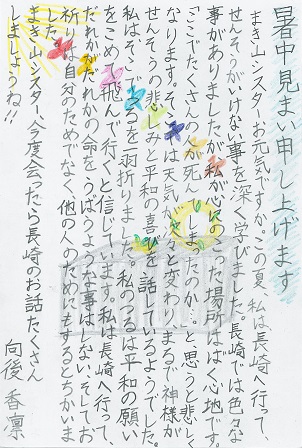 暑中見まい申し上げます
まき山シスターお元気ですか。この夏、私は長崎へ行って、
せんそうがいけない事を深く学びました。長崎では色々な
事がありましたが、私が心にのこった場所はばく心地です。
「ここでたくさんの人が死んでしまったのか…」と思うと悲しく
なります。そして、人は天気がころっと変わり、まるで神様が
せんそうの悲しみと平和の喜びを話しているようでした。
私はそこでつるを一羽折りました。私のつるは平和の願い
をこめて飛んで行くと信じています。私は長崎へ行って、
だれかがだれかの命をうばうような事はしない、そしてお
祈りは自分のためでなく、他の人のためにもするとちかいま
した。
まき山シスター、今度会ったら長崎のお話たくさん
しましょうね!!
向後 香凛